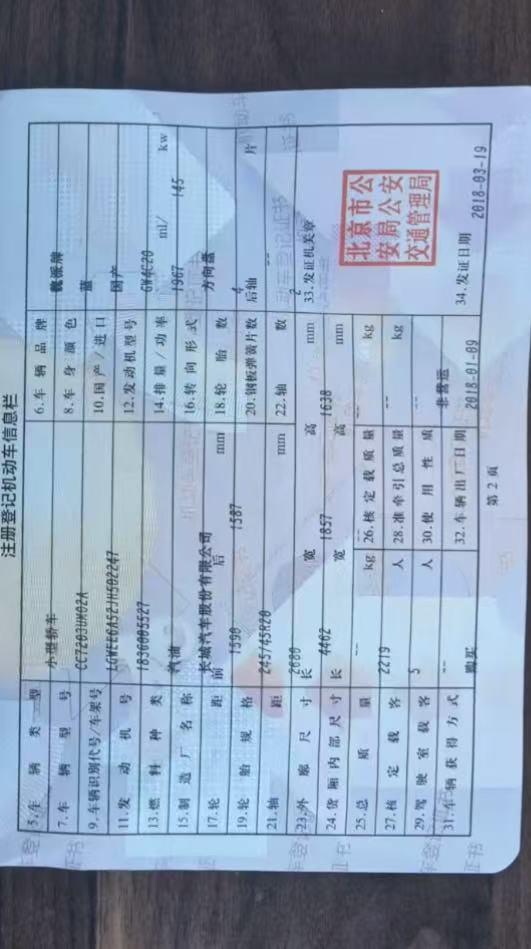 注册登记机动车信息栏
5.车辆类型 小型轿车 6.车辆品牌 魏派牌
7.车辆型号 CC7203UM02A 8.车身颜色 蓝
9.车辆识别代号/车架号 LGWEE6A52JH502247 10.国产/进口 国产
11.发动机号 1836005527 12.发动机型号 GW4C20
13.燃料种类 汽油 14.排量/功率 1967 ml/ 145 kw
15.制造厂名称 长城汽车股份有限公司 16.转向形式 方向盘
17.轮距 前 1590 后 1587 mm 18.轮胎数 4
19.轮胎规格 245/45R20 20.钢板弹簧片数 后轴 -- 片
21.轴距 2680 mm 22.轴数 2
23.外廓尺寸 长 4462 宽 1857 高 1638 mm 33.发证机关章
24.货厢内部尺寸 长 -- 宽 -- 高 -- mm
25.总质量 2219 kg 26.核定载质量 -- kg
27.核定载客 5 人 28.准牵引总质量 -- kg
29.驾驶室载客 -- 人 30.使用性质 非营运
31.车辆获得方式 购买 32.车辆出厂日期 2018-01-09 34.发证日期 2018-03-19
北京市公
安局公安
交通管理局
第 2 页